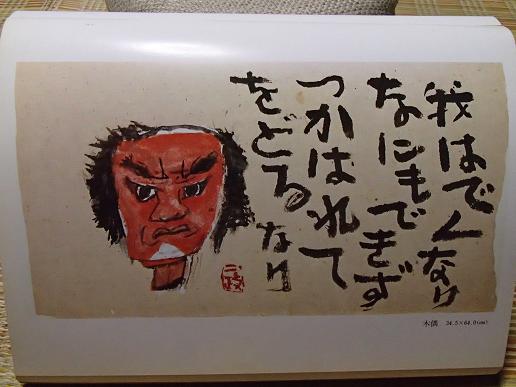 我はでくなり
なにもできず
つかはれて
をどるなり
木偶 34.5×64.0(cm)